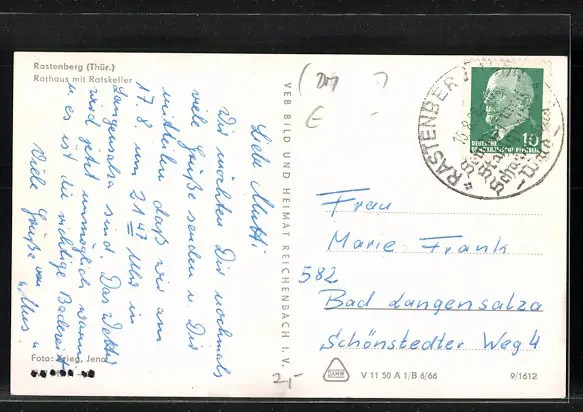 Rastenberg (Thür.)
Rathaus mit Ratskeller
Liebe Mutti!
Wir möchten Dir nochmals
viele Grüße senden u. Dir
mitteilen daß wir am
17. 8. um 21 47 Uhr in
Langensalza sind. Das Wetter
wird jetzt unmöglich warm
u. es ist die richtige Badezeit
Viele Grüße von
"Uns"
Foto: Krieg, Jena
VEB BILD UND HEIMAT REICHENBACH I. V.
RASTENBERG
DEUTSCHE
DEMOKRATISCHE REPUBLIK
10
Frau
Marie Frank
582
Bad Langensalza
Schönstedter Weg 4
2,-
V 11 50 A 1/B 6/66
9/1612